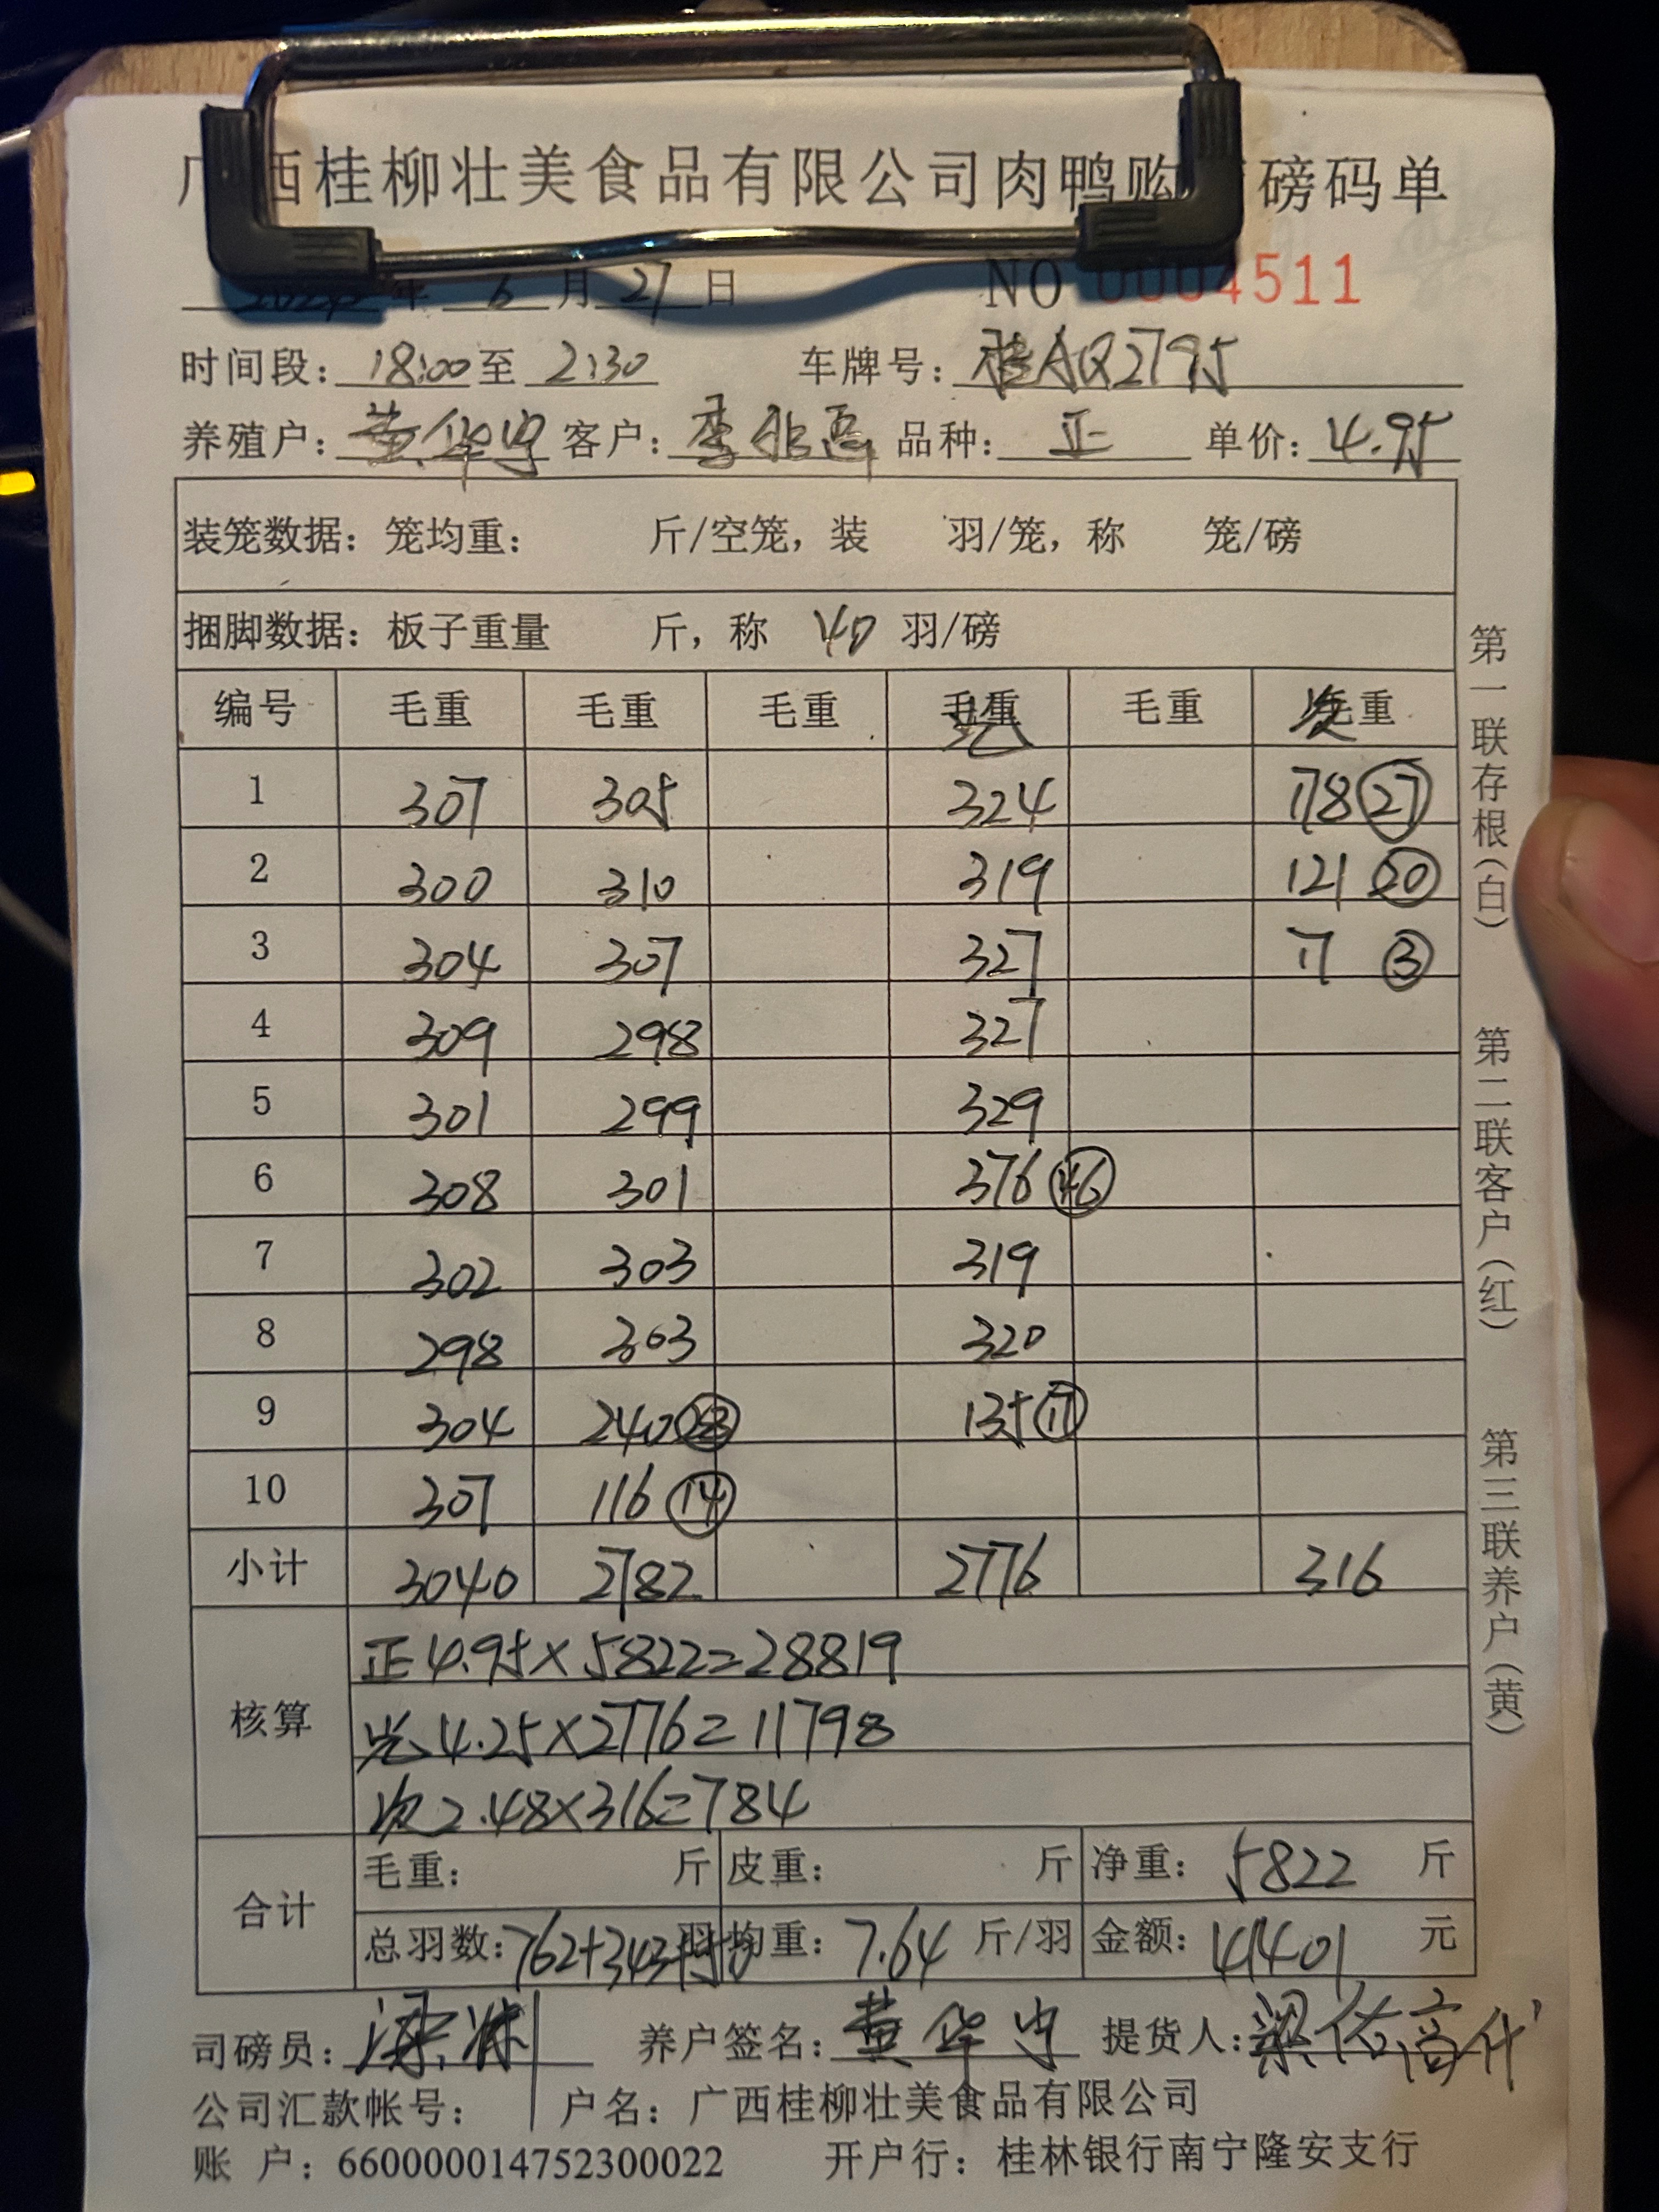 西桂柳壮美食品有限公司肉鸭购 磅码单
年 6 月 27 日 NO 0004511
时间段: 18:00 至 2:30 车牌号: 桂AQ2795
养殖户: 黄华 客户: 李 品种: 正 单价: 4.95
装笼数据: 笼均重: 斤/空笼, 装 羽/笼, 称 笼/磅
捆脚数据: 板子重量 斤, 称 40 羽/磅
编号 毛重 毛重 毛重 毛重 毛重 次毛重
1 307 305 324 178 27
2 300 310 319 121 20
3 304 307 327 17 3
4 309 298 327
5 301 299 329
6 308 301 376 46
7 302 303 319
8 298 303 320
9 304 240 135 17
10 307 116 14
小计 3040 2782 2776 316
核算
正 4.95×5822=28819
4.25×2776=11798
次 2.48×316=784
合计
毛重: 斤 皮重: 斤 净重: 5822 斤
总羽数: 762+343+50 羽 均重: 7.64 斤/羽 金额: 41401 元
司磅员: 养户签名: 黄华 提货人: 梁佑高代
公司汇款帐号: 户名: 广西桂柳壮美食品有限公司
账 户: 660000014752300022 开户行: 桂林银行南宁隆安支行
第一联存根(白)
第二联客户(红)
第三联养户(黄)